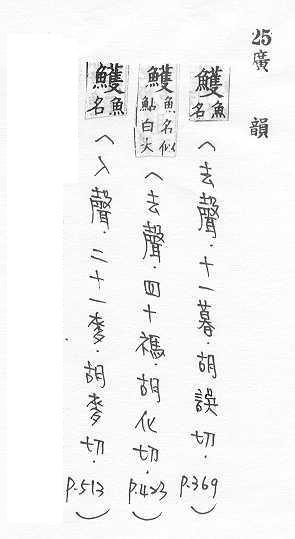 25廣韻
鱯魚名(去聲.十一暮.胡誤切.P.369)
鱯魚名似鮎白大(去聲.四十禡.胡化切.P.423)
鱯魚名(入聲.二十一麥.胡麥切.P.513)